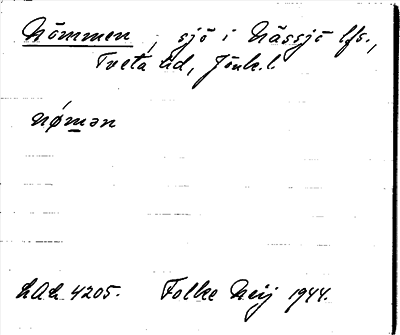 Nömmen, sjö i Nässjö lfs.,
Tveta hd, Jönk.l
nǿmən
LAL 4205. Folke Neij 1944.